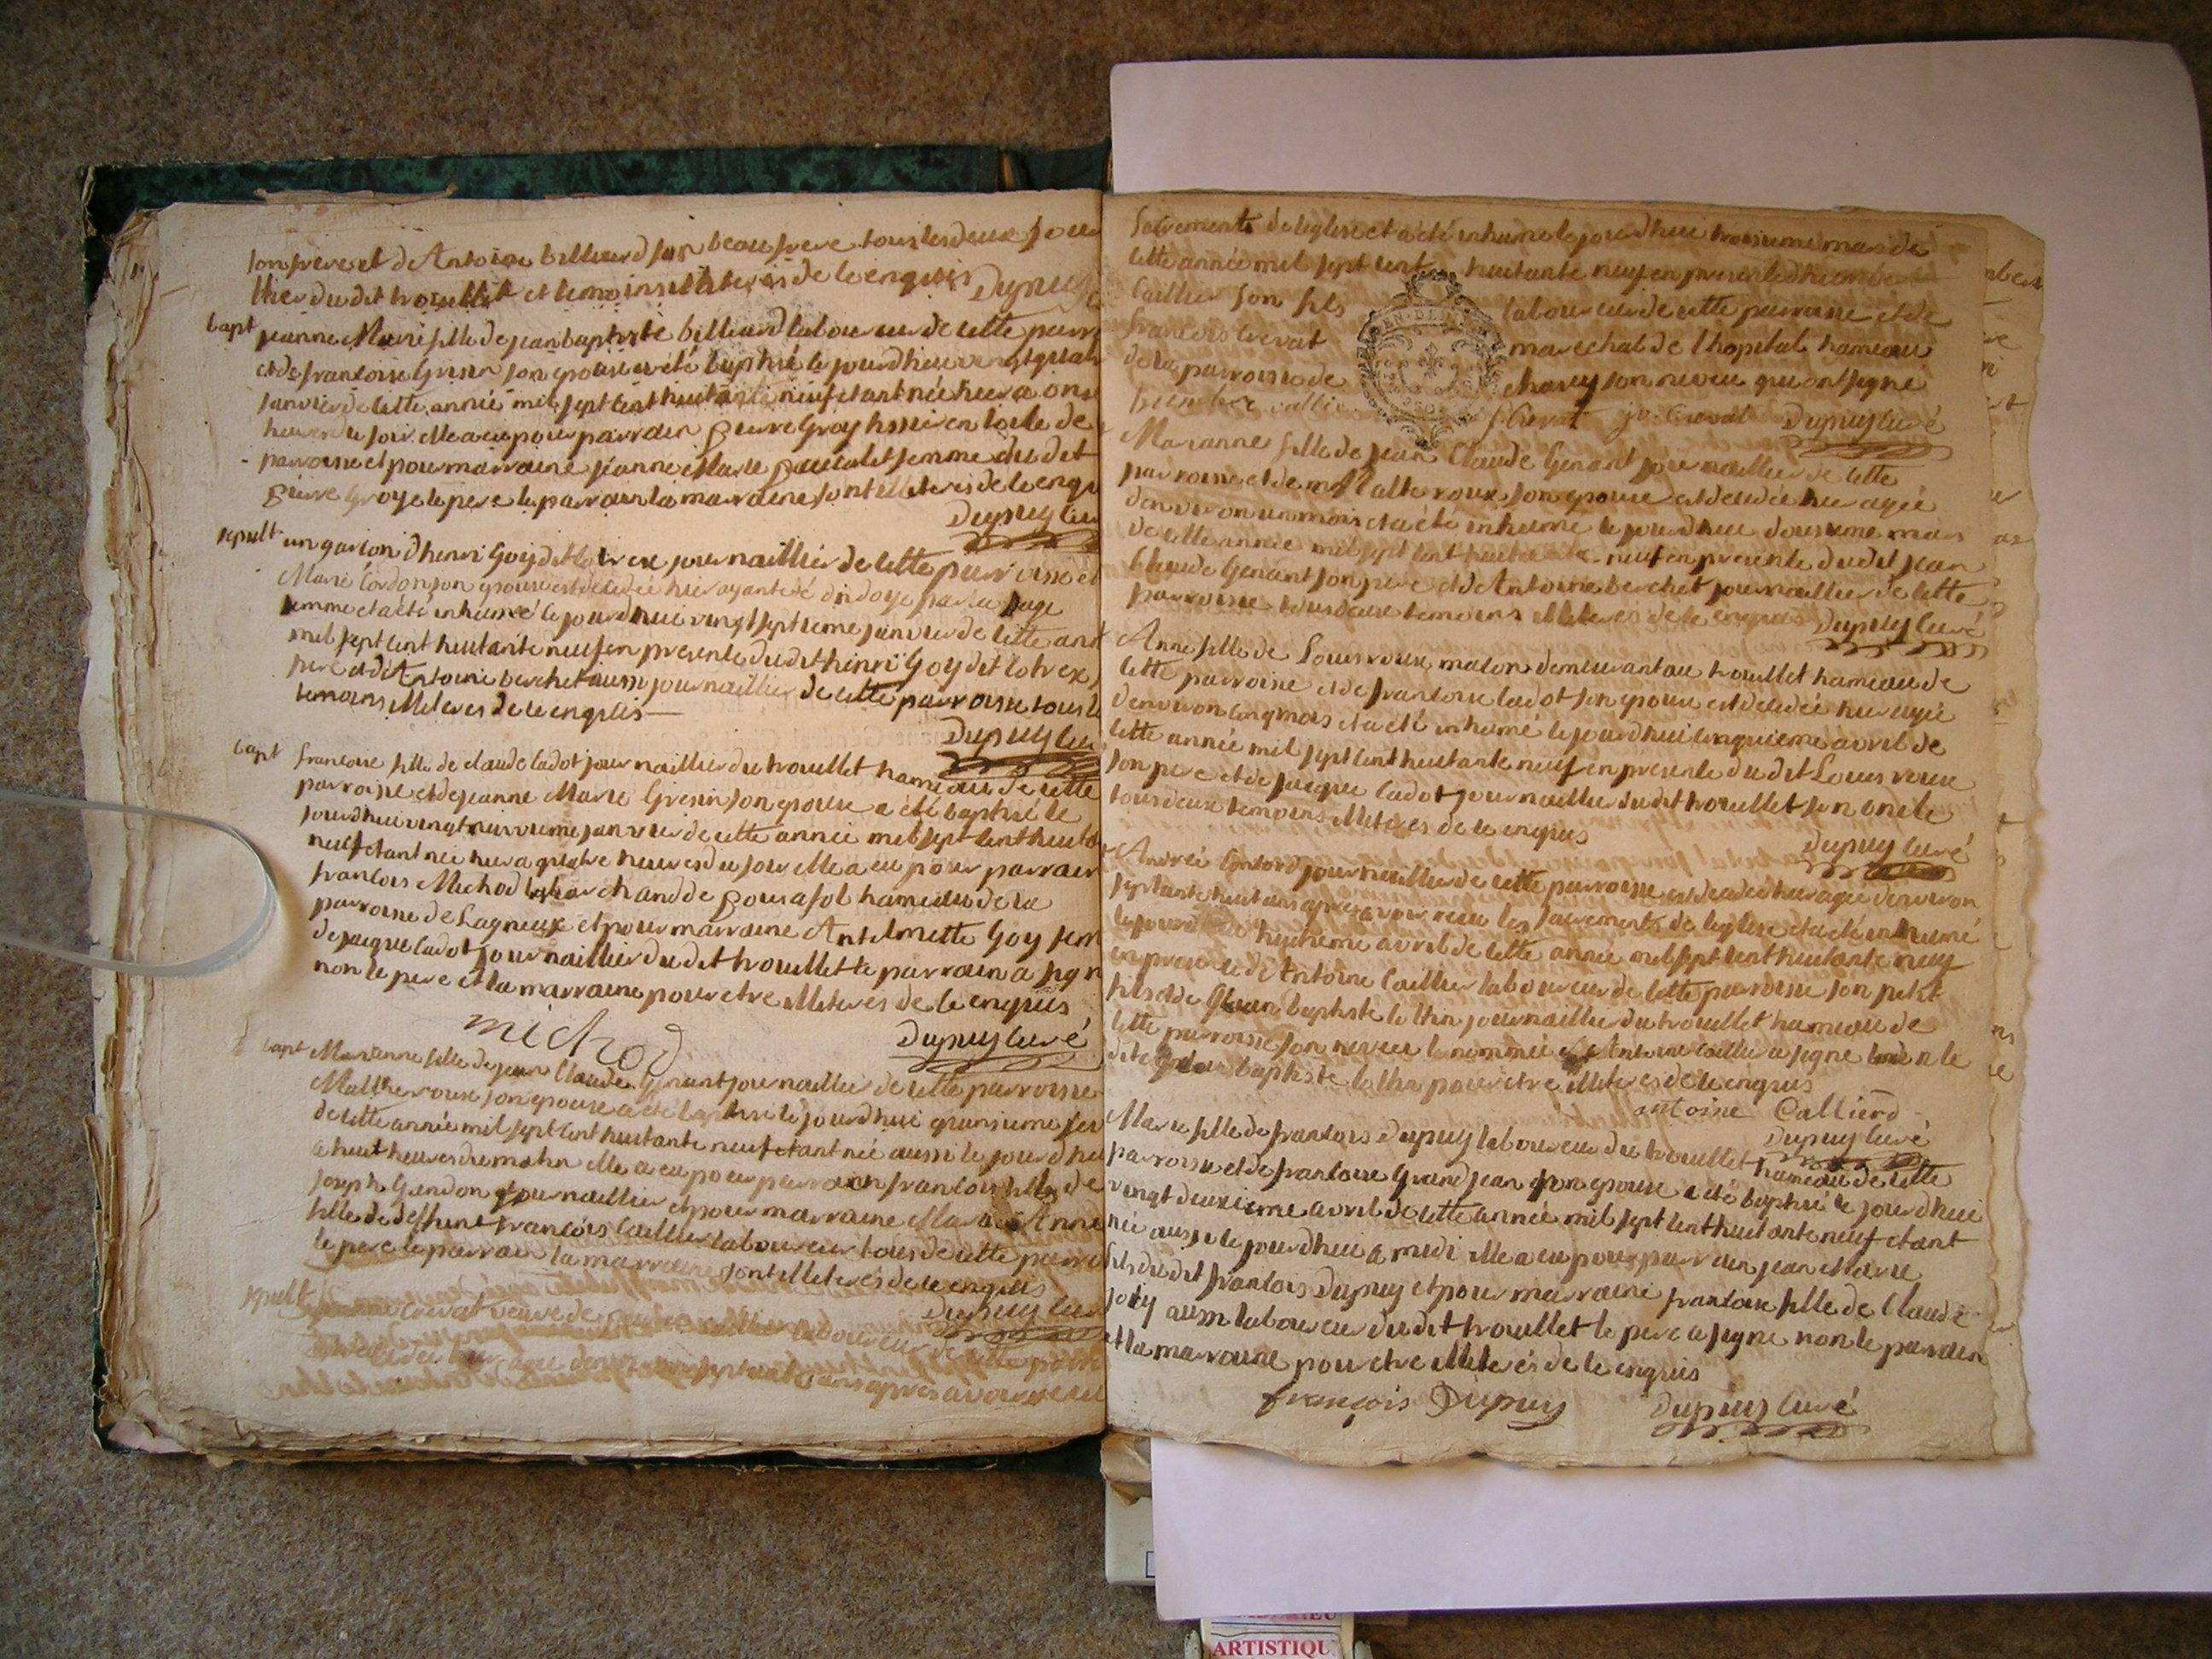 son frere et d Antoine billiard son beaufrere tous les deux jour
lhier du dit trouillet et temoins illiteres de ce enquis
Dupuy
bapt jeanne Marie fille de jean baptiste billiard laboureur de cette parr
et de francoise Gresin son epouse a été baptisé le jourd huy vingt quat
janvier de cette année mil sept cent huitante neuf etant née hier a onse
heures du soir elle a eu pour parrain pierre Groy tissier en toile de
parroisse et pour marraine jeanne Marie femme du dit
pierre Groy le pere le parrain la marraine sont illiteres de ce enqu
Dupuy cu
sepult un garcon d henri Goy dit Cotrex journaillier de cette parroisse et
Marie Cordon son epouse est decedé hier ayant eté ondoyé par la sage
femme et a eté inhumé le jourd hui vingt septieme janvier de cette ann
mil sept cent huitante neuf en presence du dit henri Goy dit Cotrex
pere et d Antoine berchet aussi journaillier de cette parroisse tous
temoins illiteres de ce enquis
Dupuy cu
bapt francoise fille de claude Cadot journaillier du trouillet hameau de cette
parroisse et de jeanne Marie Gresin son epouse a eté baptisé le
jourd hui vingt neuvieme janvier de cette année mil sept cent huita
neuf etant née hier a quatre heures du soir elle a eu pour parrain
francois Michod marchand de pousafol hameau de la
parroisse de Lagnieux et pour marraine Antelmette Goy fem
de jacque Cadot journaillier du dit trouillet le parrain a sign
non le pere et la marraine pour etre illiteres de ce enquis
michod
Dupuy curé
bapt Marianne fille de jean Claude Genant journaillier de cette parroisse
Malthe roux son epouse a eté baptisé le jourd hui quinsieme fev
de cette année mil sept cent huitante neuf etant née aussi le jourd hui
a huit heures du matin elle a eu pour parrain francois fils de
joseph Gendon journaillier et pour marraine Marie Anne
fille de deffunt francois Caillier laboureur tous de cette parroi
le pere le parrain la marraine sont illiteres de ce enquis
Dupuy cur
sepult Crevat veuve de laboureur de cette parroi
decedée hier agée d septante ans apres avoir receu
sacrements de leglise et a eté inhumé le jourd hui troisieme mars de
cette année mil sept cent huitante neuf en presence d humbert
Caillier son fils laboureur de cette parroisse et de
francois Crevat marechal de l hopital hameau
de la parroisse de Charey son neveu qui ont signé
humber callier f Crevat Crevat Dupuy curé
Marianne fille de jean Claude Genant journaillier de cette
parroisse et de Malthe roux son epouse est decedée hier agée
denviron un mois et a été inhumé le jourd hui dousieme mars
de cette année mil sept cent huitante neuf en presence du dit jean
Claude Genant son pere et d Antoine berchet journaillier de cette
parroisse tous deux temoins illiteres de ce enquis Dupuy curé
Anne fille de Louis roux macon demeurant au trouillet hameau de
cette parroisse et de francoise Cadot son epouse est decedée hier agée
denviron cinq mois et a été inhumé le jourd hui cinquieme avril de
cette année mil sept cent huitante neuf en presence du dit Louis roux
son pere et de jacque Cadot journaillier du dit trouillet son oncle
tous deux temoins illiteres de ce enquis
Dupuy curé
André journaillier de cette parroisse est decedé hier agé denviron
septante huit ans apres avoir receu les sacrements de leglise et a eté inhumé
le jourd hui huitieme avril de cette année mil sept cent huitante neuf
en presence d Antoine Caillier laboureur de cette parroisse son petit
fils et de jean baptiste journaillier du trouillet hameau de
cette parroisse son neveu le nommé Antoine caillier a signé non le
dit jean baptiste pour etre illiteres de ce enquis
antoine Callierd
Dupuy curé
Marie fille de francois Dupuy laboureur du trouillet hameau de cette
parroisse et de francoise Grand jean son epouse a été baptisé le jourd hui
vingt deuxieme avril de cette année mil sept cent huitante neuf etant
née aussi le jourd hui a midi elle a eu pour parrain jean Marie
fils du dit francois Dupuy et pour marraine francoise fille de Claude
joly aussi laboureur du dit trouillet le pere a signé non le parrain
et la marraine pour etre illiteres de ce enquis
françois Dupuy Dupuy curé
ARTISTIQU